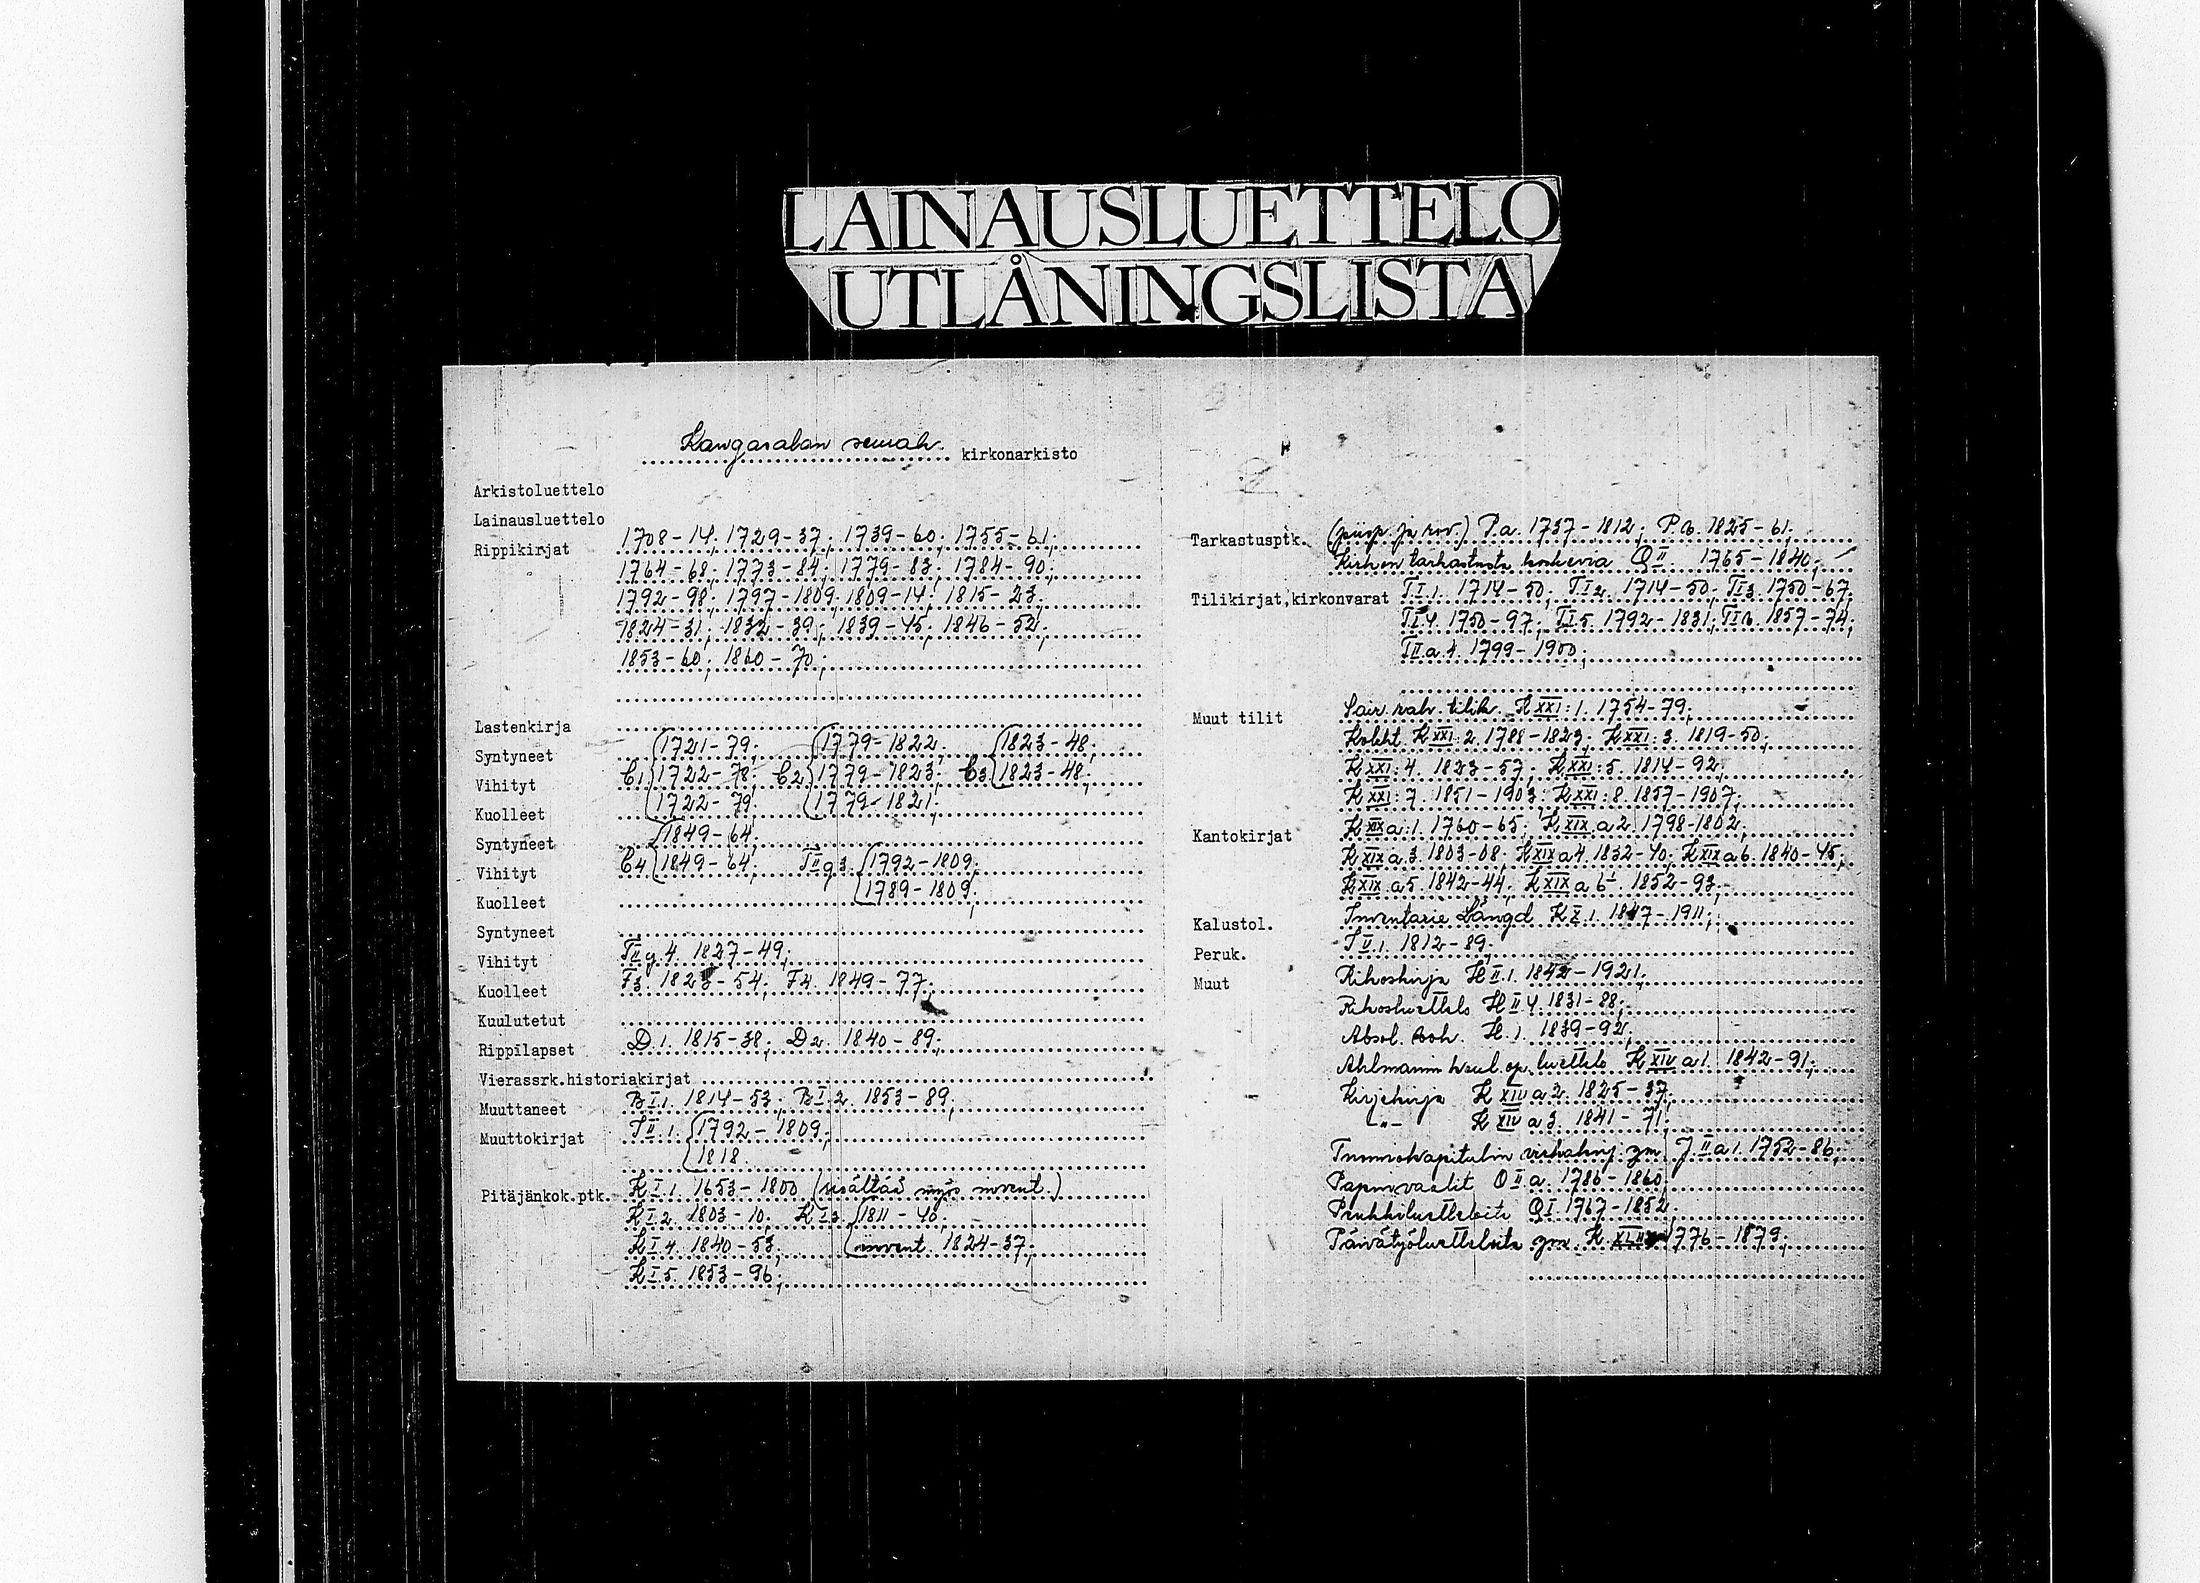 LAINAUSLUETTELO
UTLÅNINGSLISTA
Kangasalan seurak. kirkonarkisto
Arkistoluettelo
Lainausluettelo
Rippikirjat 1708-14; 1729-37; 1739-60; 1755-61;
1764-68; 1773-84; 1779-83; 1784-90;
1792-98; 1797-1809; 1809-14; 1815-23;
1824-31; 1832-39; 1839-45; 1846-52;
1853-60; 1860-70;
Lastenkirja
Syntyneet 1721-79; 1779-1822; 1823-48;
Vihityt C1 1722-78; C2 1779-1823; C3 1823-48;
Kuolleet 1722-79; 1779-1821;
Syntyneet 1849-64;
Vihityt C4 1849-64; TII g 3. 1792-1809;
Kuolleet 1789-1809;
Syntyneet
Vihityt TII g. 4. 1827-49;
Kuolleet F3. 1823-54; F4. 1849-77;
Kuulutetut
Rippilapset D.1. 1815-38; D2. 1840-89;
Vierassrk.historiakirjat
Muuttaneet BI.1. 1814-53; BI.2. 1853-89;
Muuttokirjat 1. 1792-1809;
1818.
Pitäjänkok.ptk. KI.1. 1653-1800 (sisältää myös invent.)
KI.2. 1803-10; KI3. 1811-40;
KI.4. 1840-53; invent. 1824-37;
KI.5. 1853-96;
Tarkastusptk. (piisp. ja rov.) P.a. 1737-1812; P.b. 1825-61;
Kirkon tarkastusta koskevia QII. 1765-1840;
Tilikirjat,kirkonvarat TI.1. 1714-50; TI2. 1714-50; TI3. 1750-67;
TI.4. 1750-97; TI.5. 1792-1831; TI6. 1857-74;
TII.a.1. 1799-1900;
Muut tilit Sair. rah. tilik. KXXI:1. 1754-79;
Kolekt. KXXI:2. 1788-1823; KXXI:3. 1819-50;
KXXI:4. 1823-57; KXXI:5. 1814-92;
KXXI:7. 1851-1903; KXXI:8. 1857-1907;
Kantokirjat KXIX a:1. 1760-65; KXIX.a2. 1798-1802;
KXIX a.3. 1803-08; KXIX a4. 1832-40; KXIX a6. 1840-45;
KXIX.a5. 1842-44; KXIX a 6. 1852-93;
Kalustol. Inventarie Längd KX.1. 1847-1911;
Peruk. II.1. 1812-89;
Muut Rikoskirja HII.1. 1842-1921;
Rikosluettelo HII.4. 1831-88;
Absol. bok. H.1. 1839-92;
Ahlmannin koul. op. luettelo KXIV a1. 1842-91;
Kirjekirja KXIV a2. 1825-37;
-"- KXIV a3. 1841-71;
Tuomiokapitulin virkakirj. ym. J.II a1. 1752-86;
Papinvaalit OII.a. 1786-1860;
Penkkiluetteloita QI. 1767-1852;
Päivätyöluetteloita ym. K 1776-1879;